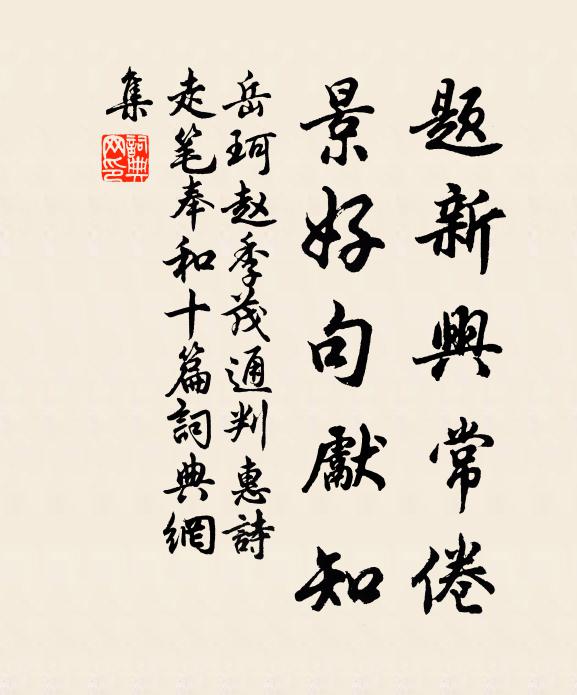 題新興常倦
景好句獻知
岳珂趙季茂通判惠詩
走笔奉和十篇詞典網
集
詞典網印